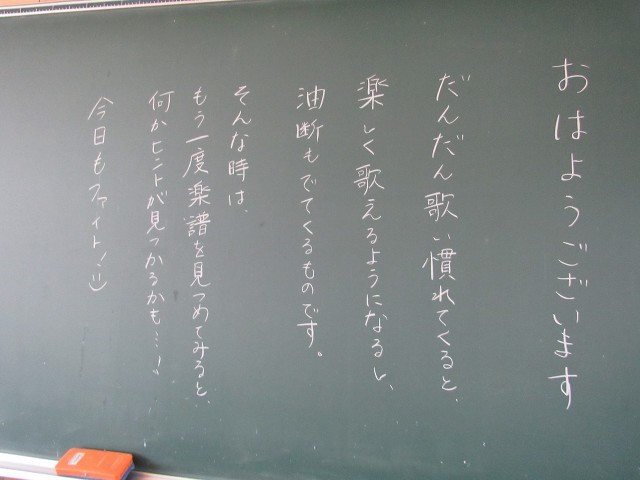 おはようございます
だんだん歌い慣れてくると、
楽しく歌えるようになるし、
油断もでてくるものです。
そんな時は、
もう一度楽譜を見つめてみると、
何かヒントが見つかるかも…!!
今日もファイト!ニ)